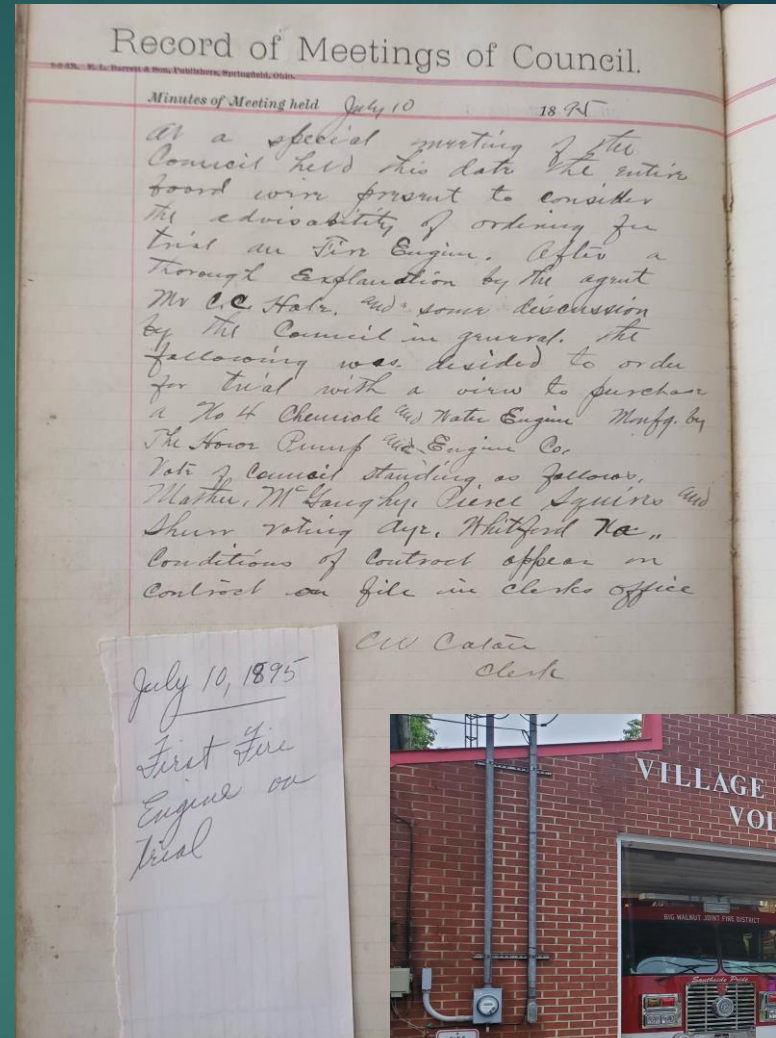 Record of Meetings of Council.
E. L. Barrett & Son, Publishers, Springfield, Ohio.
Minutes of Meeting held July 10 1895
At a special meeting of the
Council held this date the entire
board were present to consider
the advisability of ordering for
trial an Fire Engine. After a
thorough Explanation by the agent
Mr C.C. Hale. and some discussion
by the Council in general. the
following was desided to order
for trial with a view to purchase
a No 4 Chemicale and Water Engine Monfg. by
The Howe Pump and Engine Co.
Vote of Council standing as follows.
Mather, McGaughy, Pierce Squires and
Shurr voting Aye. Whitford No"
Conditions of Contract appear on
Contract on file in clerks office
CW Caton
Clerk
July 10, 1895
First Fire
Engine on
trial
VILLAGE
VOL
BIG WALNUT JOINT FIRE DISTRICT
Southside Pride